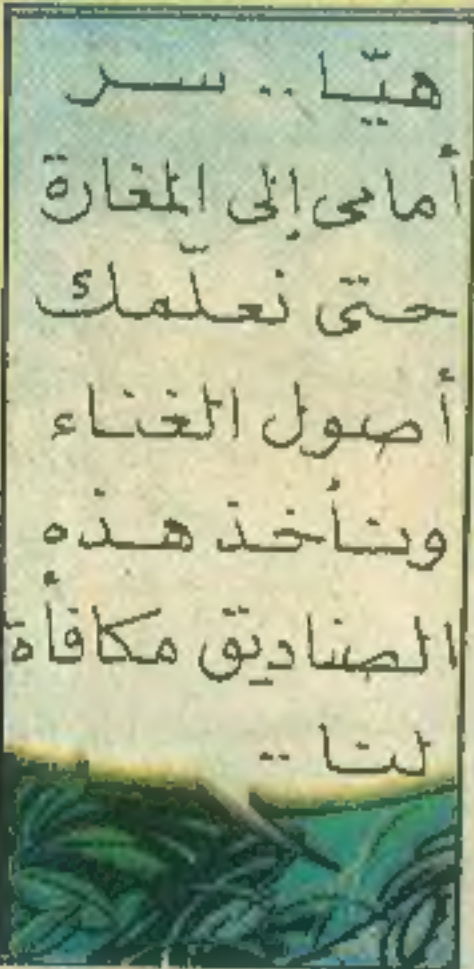 هيّا .. سر
أمامى إلى المغارة
حتى نعلّمك
أصول الغناء
ونأخذ هذه
الصناديق مكافأة
لنا ..